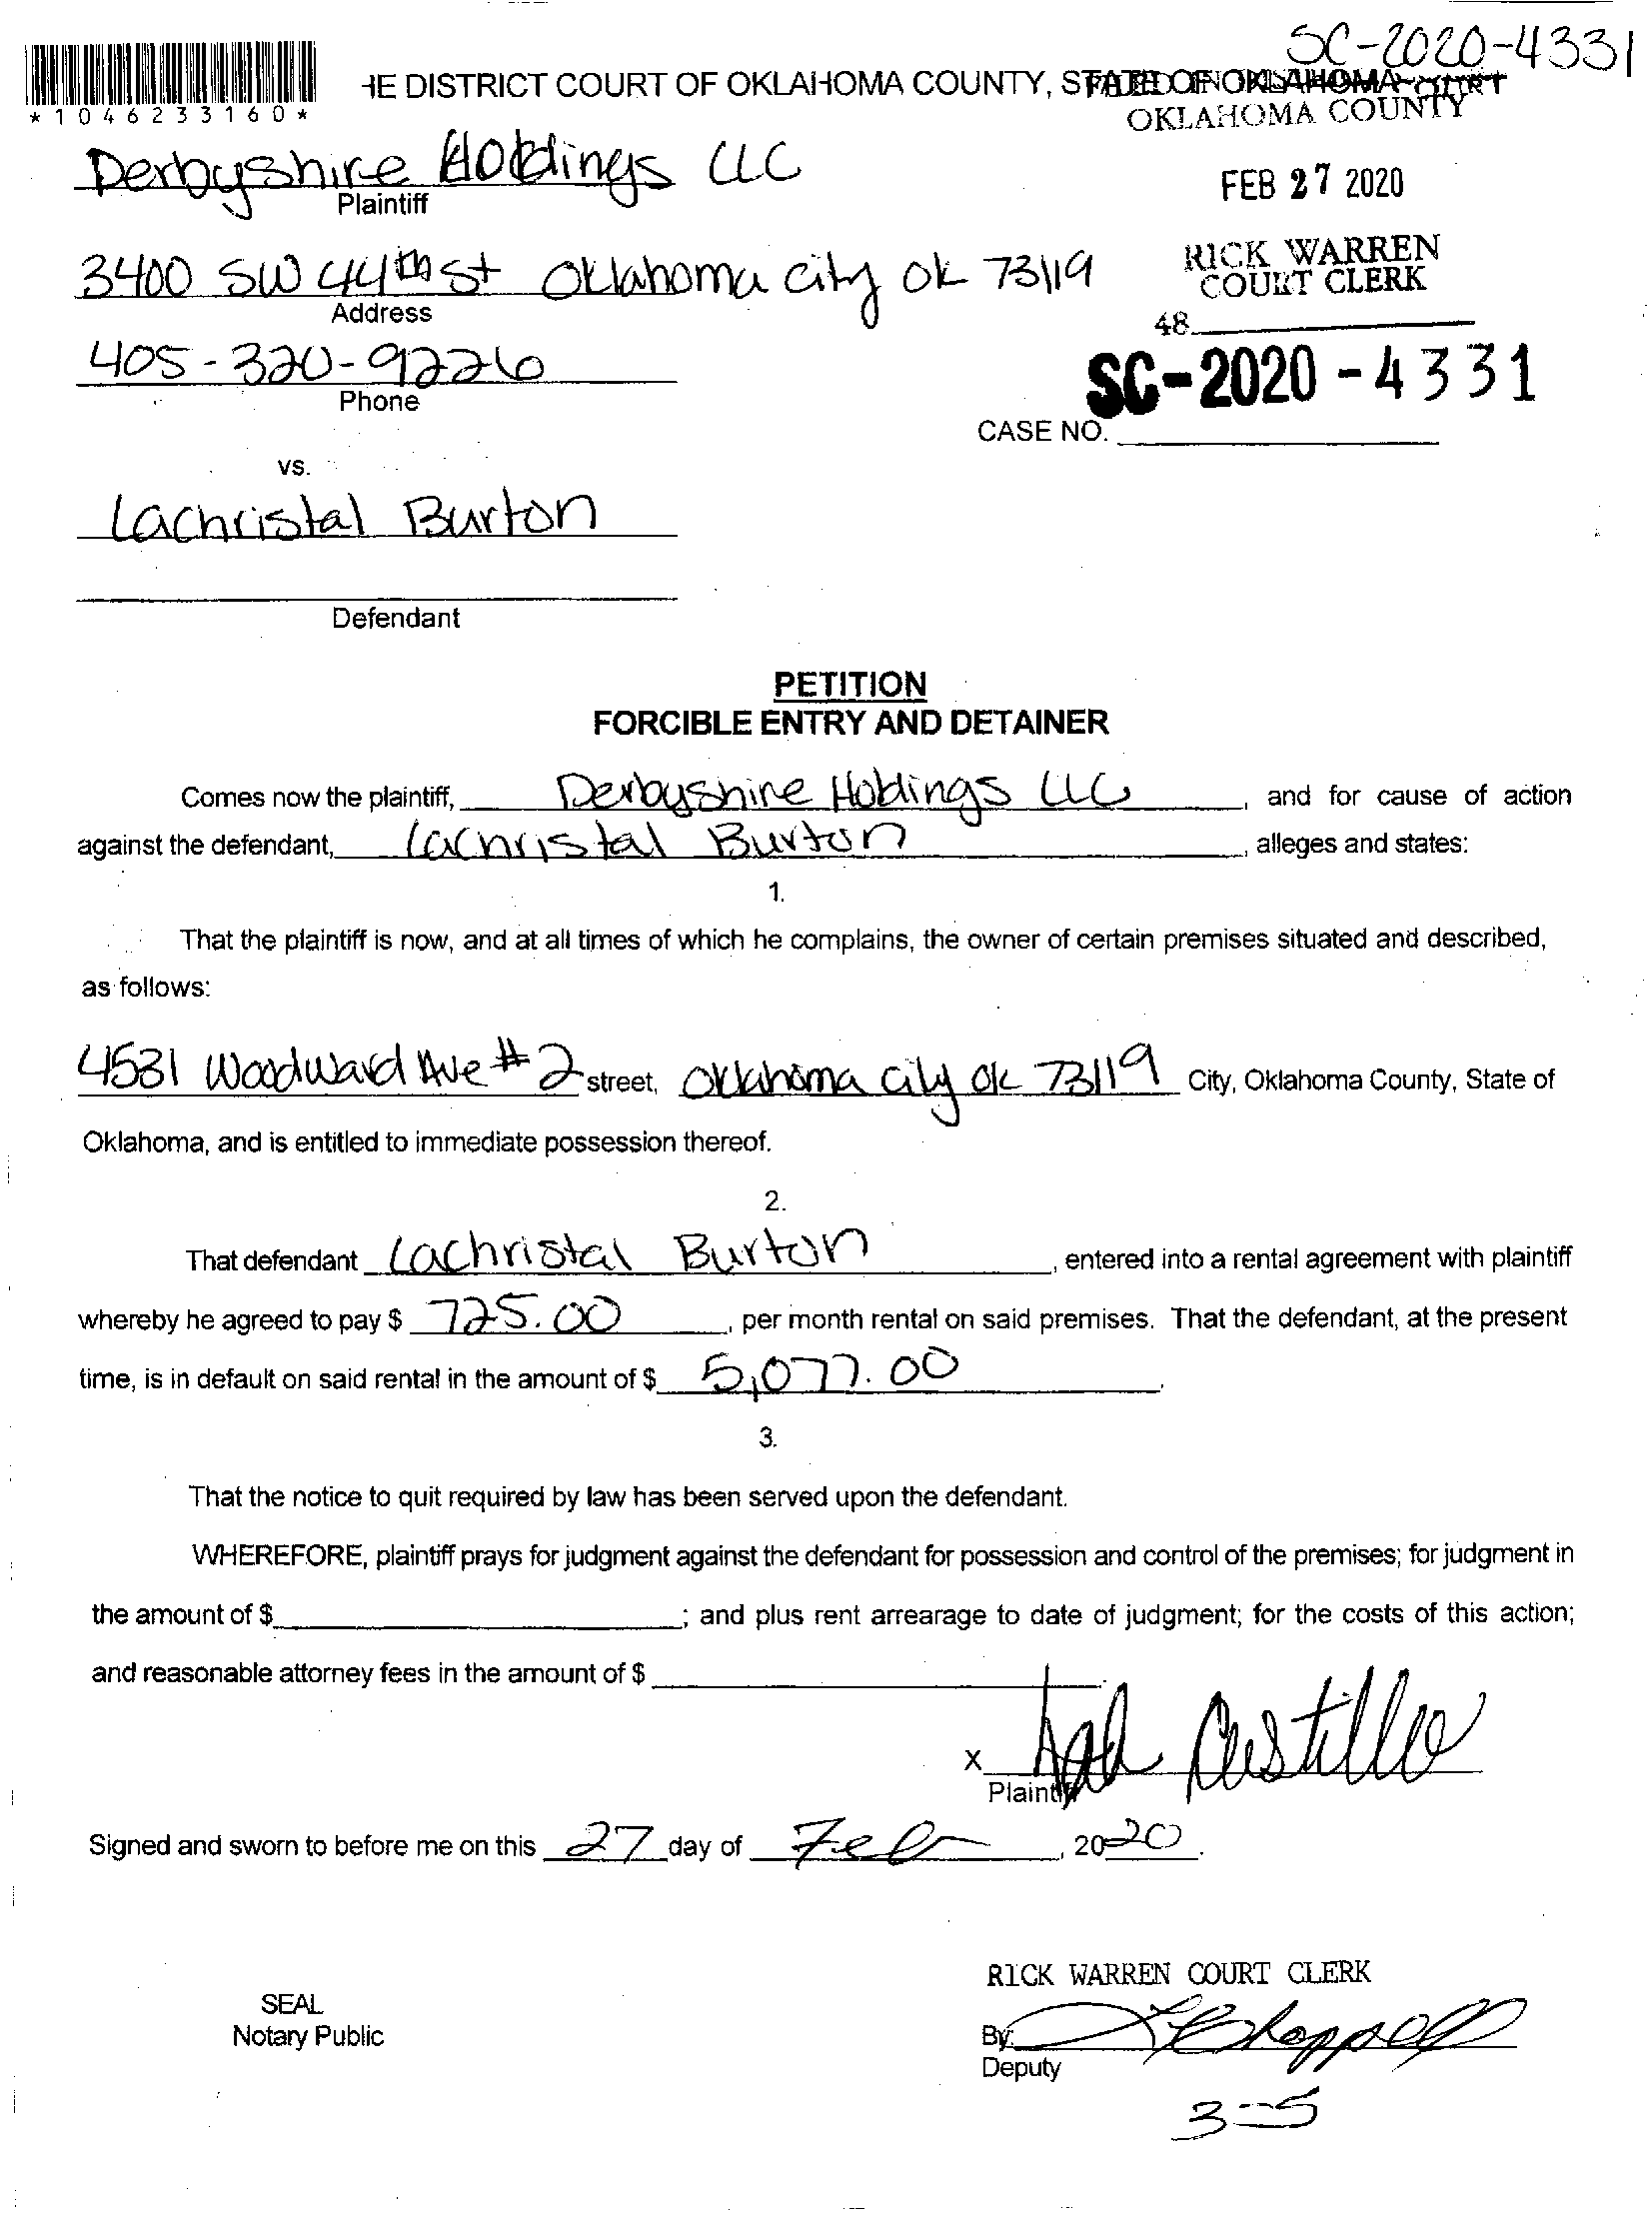 SC-2020-4331
HE DISTRICT COURT OF OKLAHOMA COUNTY, STATE OF OKLAHOMA
OKLAHOMA COUNTY
*1046233160*
Derbyshire Holdings LLC
Plaintiff
FEB 27 2020
3400 SW 44th St Oklahoma City OK 73119
Address
RICK WARREN
COURT CLERK
48
405-320-9226
Phone
SC-2020-4331
CASE NO.
vs.
Lachristal Burton
Defendant
PETITION
FORCIBLE ENTRY AND DETAINER
Comes now the plaintiff, Derbyshire Holdings LLC, and for cause of action
against the defendant, Lachristal Burton, alleges and states:
1.
That the plaintiff is now, and at all times of which he complains, the owner of certain premises situated and described,
as follows:
4531 Woodward Ave #2 street, Oklahoma City OK 73119 City, Oklahoma County, State of
Oklahoma, and is entitled to immediate possession thereof.
2.
That defendant Lachristal Burton, entered into a rental agreement with plaintiff
whereby he agreed to pay $ 725.00, per month rental on said premises. That the defendant, at the present
time, is in default on said rental in the amount of $ 5,077.00.
3.
That the notice to quit required by law has been served upon the defendant.
WHEREFORE, plaintiff prays for judgment against the defendant for possession and control of the premises; for judgment in
the amount of $ ; and plus rent arrearage to date of judgment; for the costs of this action;
and reasonable attorney fees in the amount of $ .
x Castillo
Plaintiff
Signed and sworn to before me on this 27 day of Feb, 2020.
RICK WARREN COURT CLERK
SEAL
Notary Public
By: Chappell
Deputy
3-5